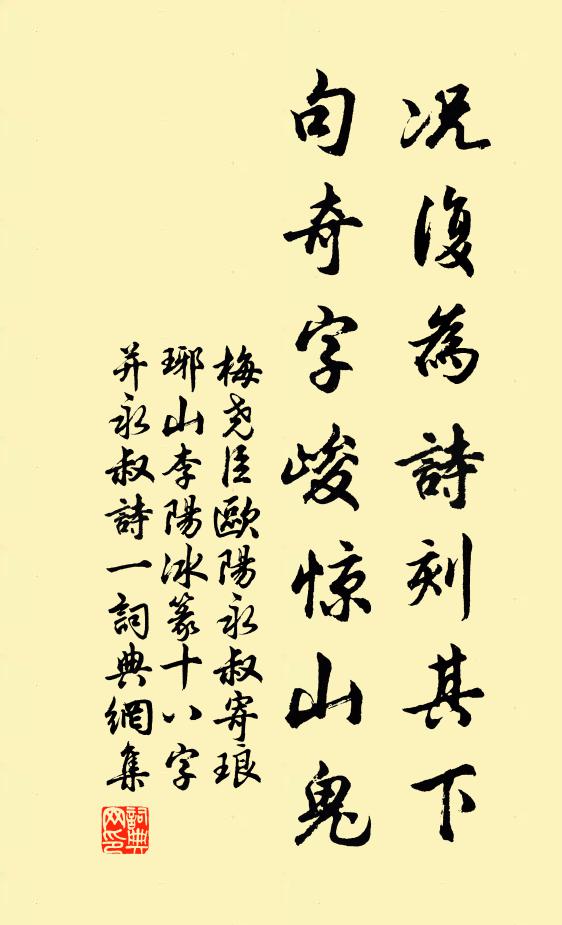 况復為詩刻其下
句奇字峻惊山鬼
梅尧臣歐陽永叔寄琅
琊山李陽冰篆十八字
并永叔詩一詞典網集
詞典网印